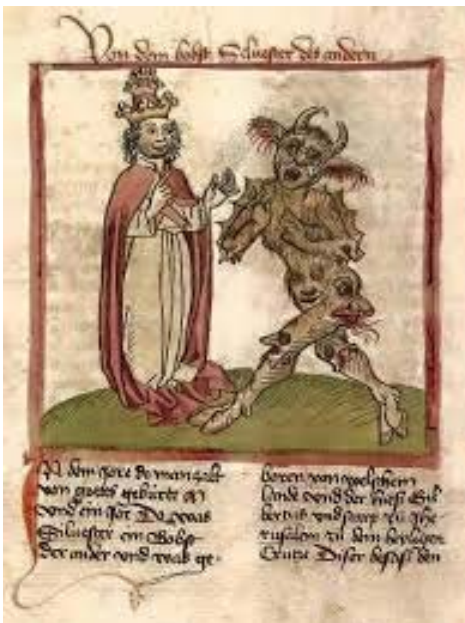 Von dem bobst Siluester des andern
In dem jore do man zalt
von gottes geburte
vnd ein jor Do was
Siluester ein Bobst
der ander vnd was ge-
boren von welschem
lande vnd der hieß Gil
bertus vnd starp zu Jhe
rusalem zu dem heyligen
Crutze Diser besaß den